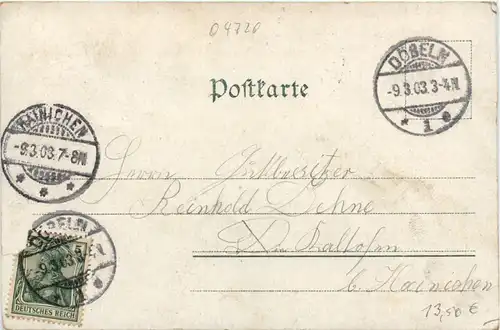 04720
DÖBELN
-9.3.03.3-4N.
* 1 e
Postkarte
HAINICHEN
-9.3.03.7-8N
* * *
Herrn Gutbesitzer
Reinhold Dehne
Kaltofen
b. Hainichen
DÖBELN
5
DEUTSCHES REICH
13,50 €